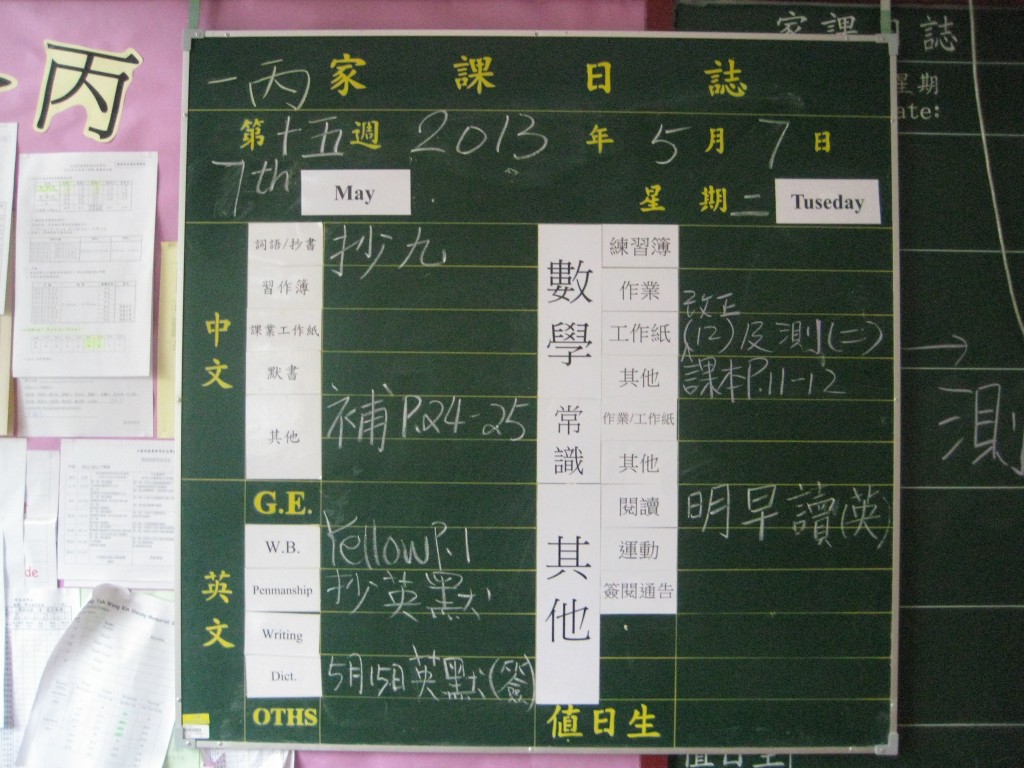 一丙
一丙 家課日誌
第十五週 2013年5月7日
7th May
星期二 Tuseday
中文
詞語/抄書 抄九
習作簿
課業工作紙
默書
其他 補P.24-25
英文
G.E.
W.B. Yellow P.1
Penmanship 抄英默
Writing
Dict. 5月15日英默(簽)
OTHS
數學
練習簿
作業
改正
工作紙 (12)及測(二)
其他 課本P.11-12
常識
作業/工作紙
其他
其他
閱讀 明早讀(英)
運動
簽閱通告
值日生
家課日誌
星期
ate:
→
測
值日生
de